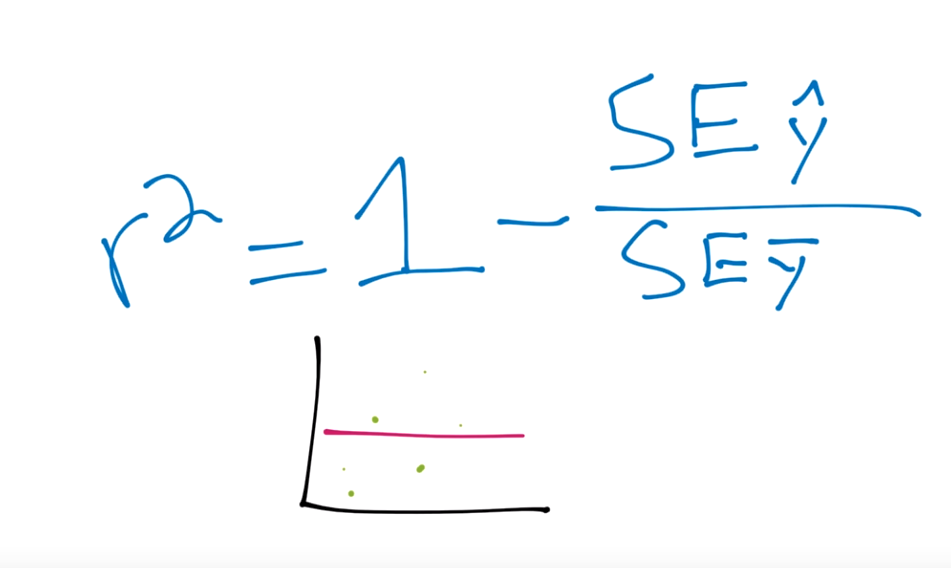 r² = 1 - SE ŷ / SE y̅